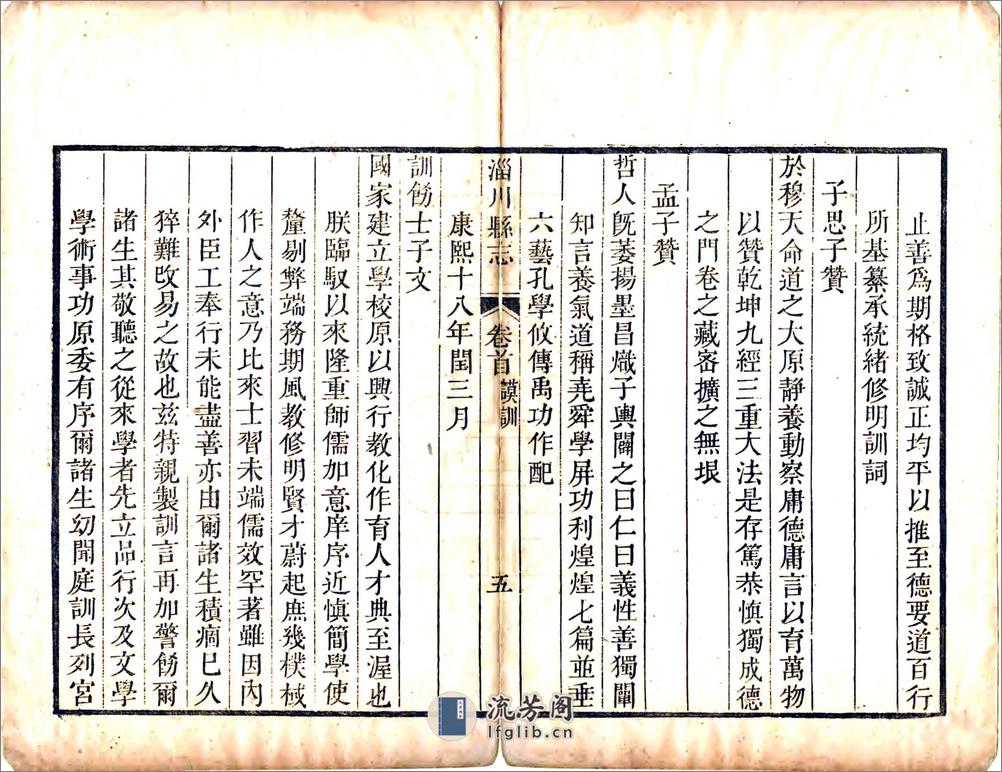 止善爲期格致誠正均平以推至德要道百行
所基纂承統緒修明訓詞
子思子贊
於穆天命道之大原靜養動察庸德庸言以育萬物
以贊乾坤九經三重大法是存篤恭慎獨成德
之門卷之藏密擴之無垠
孟子贊
哲人旣萎揚墨昌熾子輿闢之曰仁曰義性善獨闡
知言養氣道稱堯舜學屏功利煌煌七篇並垂
六藝孔學攸傳禹功作配
康熙十八年閏三月
淄川縣志
卷首
謨訓
五
訓飭士子文
國家建立學校原以興行教化作育人才典至渥也
朕臨馭以來隆重師儒加意庠序近慎簡學使
釐剔弊端務期風教修明賢才蔚起庶幾樸棫
作人之意乃比來士習未端儒效罕著雖因內
外臣工奉行未能盡善亦由爾諸生積痼已久
猝難改易之故也茲特親製訓言再加警飭爾
諸生其敬聽之從來學者先立品行次及文學
學術事功原委有序爾諸生幼聞庭訓長列宮
流芳阁
lfglib.cn